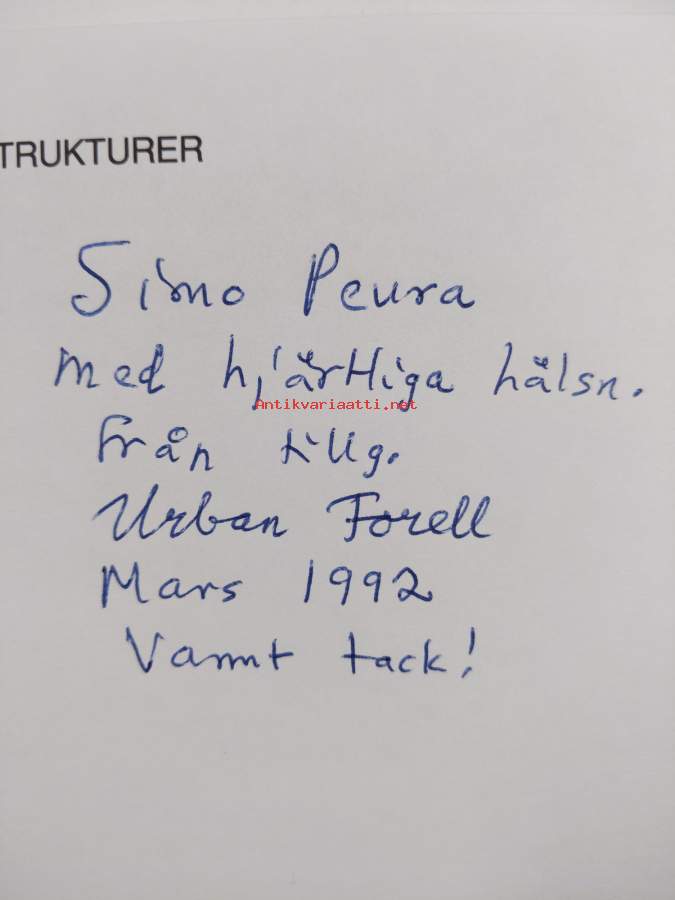 TRUKTURER
Simo Peura
med hjärtliga hälsn.
Antikvariaatti.net
från tillg.
Urban Forell
Mars 1992
Varmt tack!